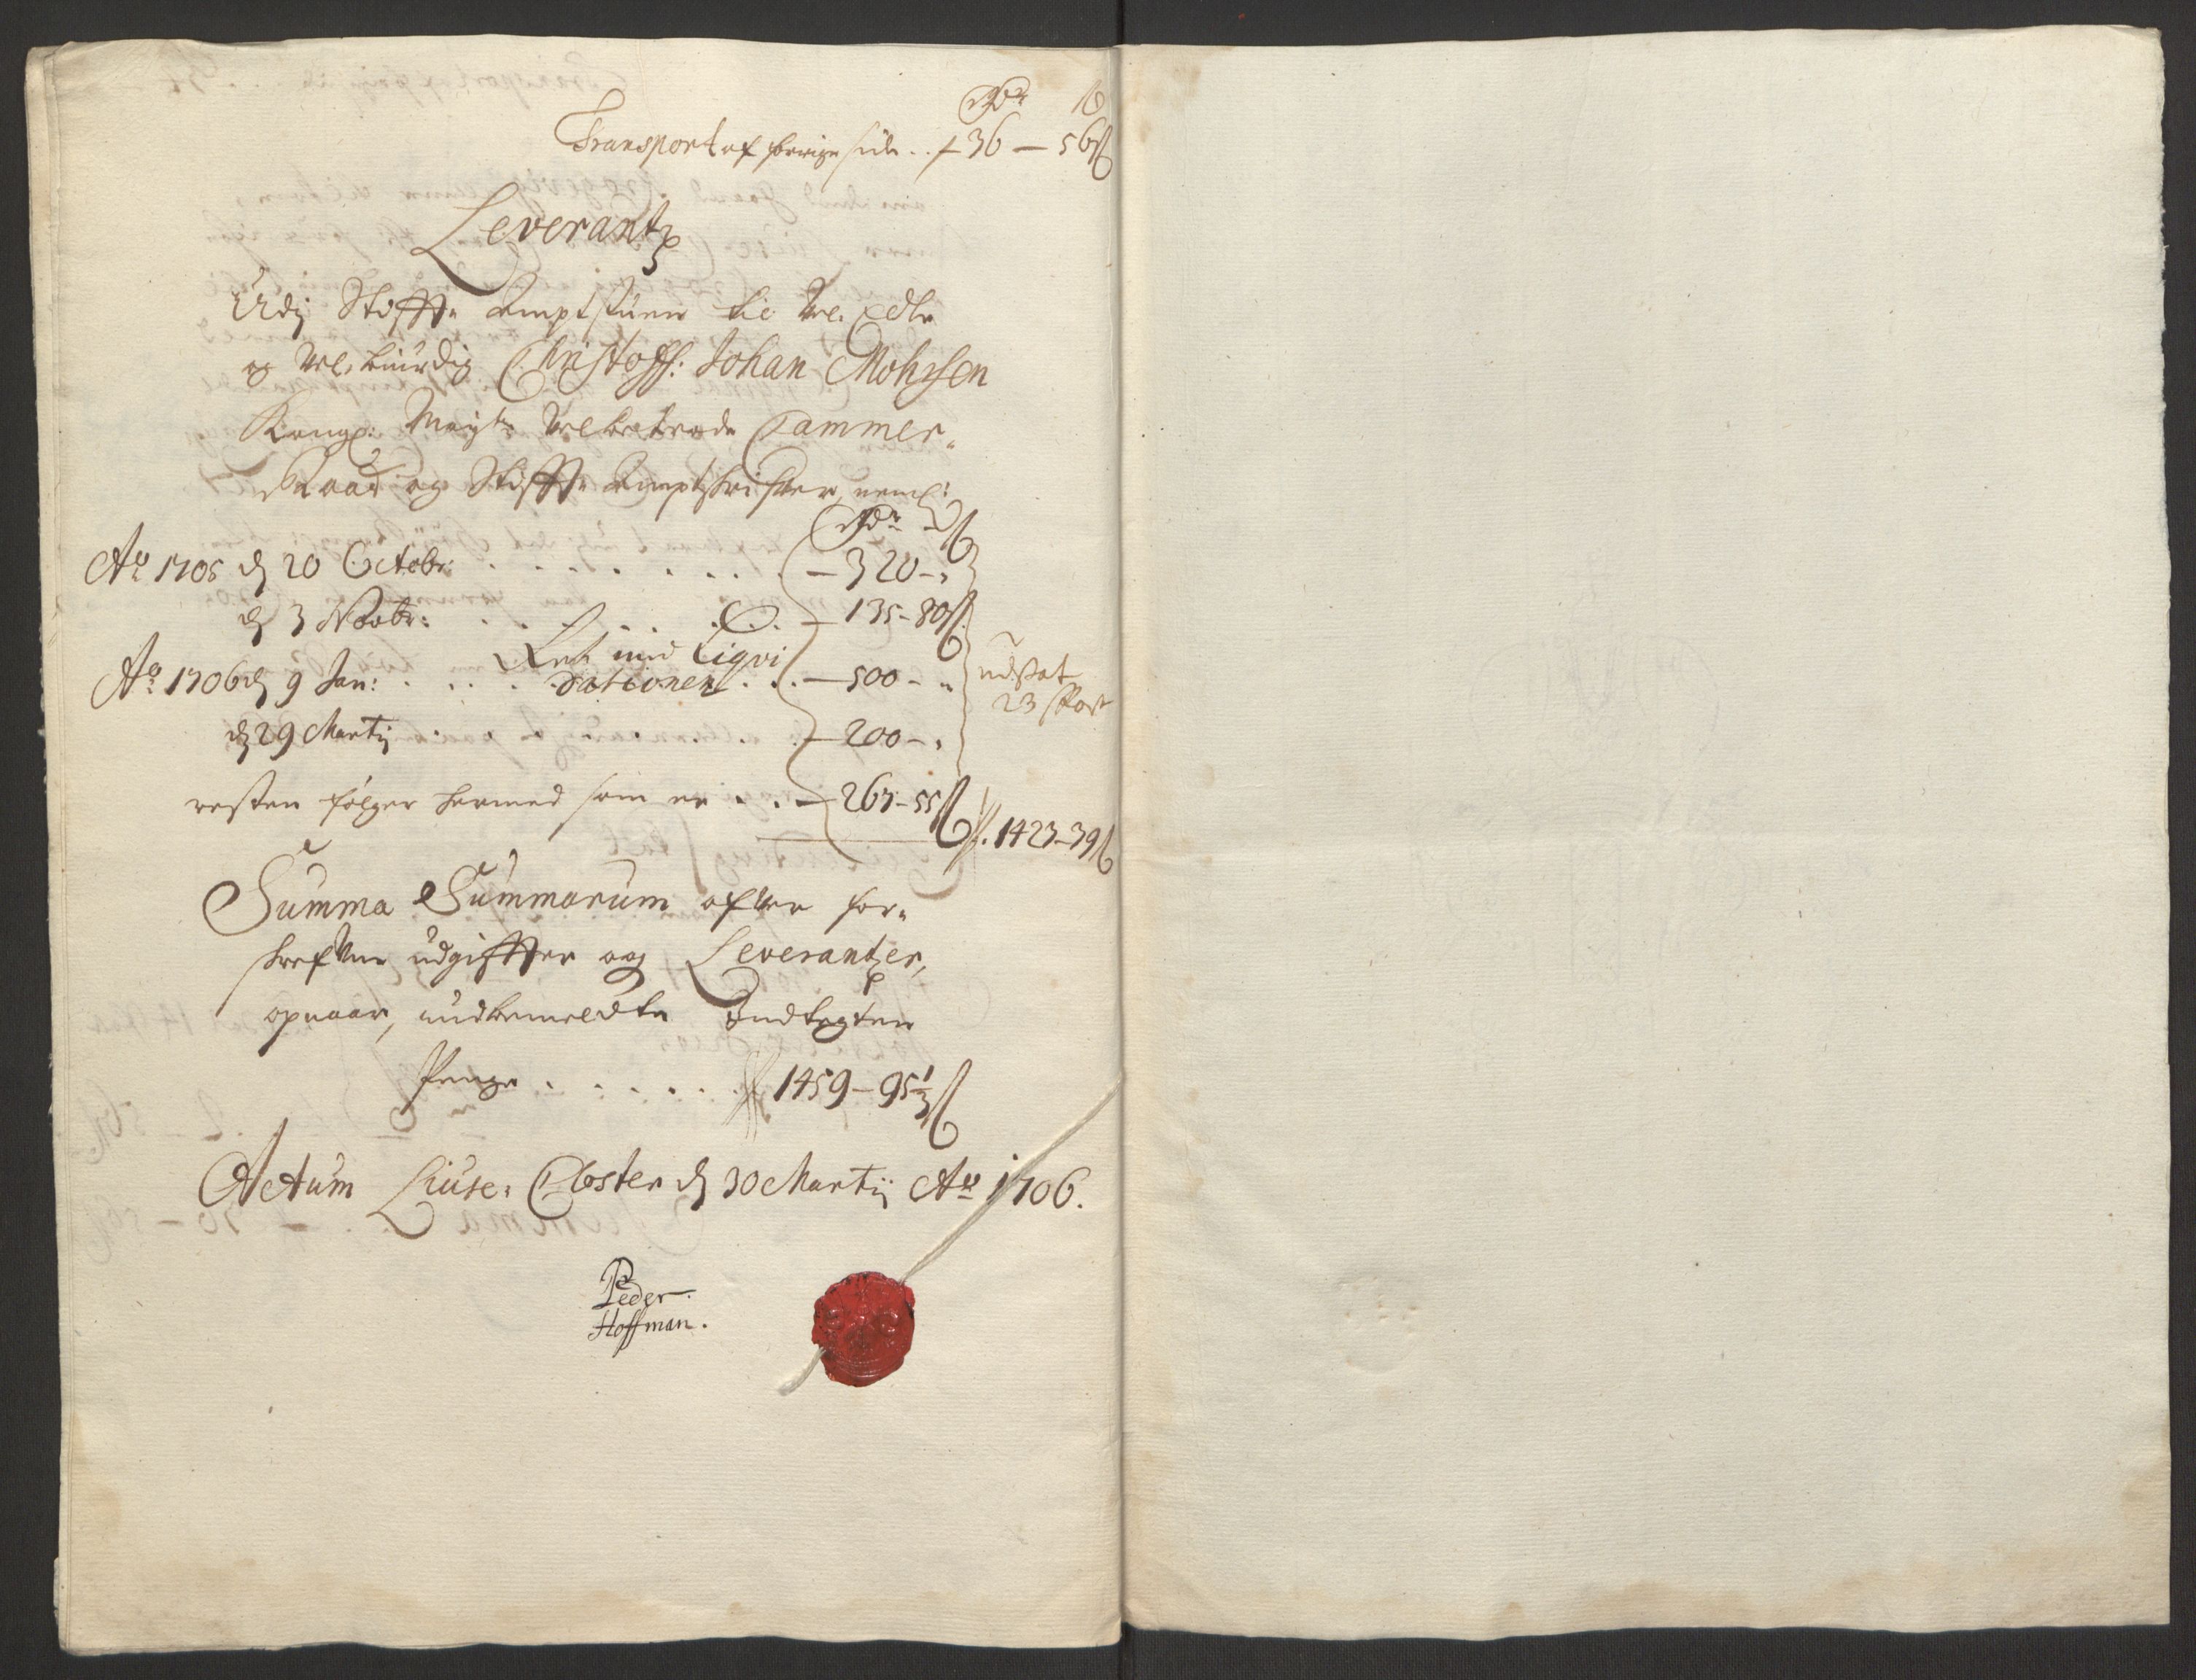 Rdr ß
Transport af forrige side .. 36 — 56 ß
Leverantz
Udj Stiffts Amptstuen till Wel Edle
og Wel biurdig Christoff: Johan Mohrsen
Kongl: Mayts Velbetrode Cammer-
Raad og Stiffts Amptskrifver, neml:
Rdr ß
Ao 1705 d 20 Octobr: . . . . . . . . — 320 - „
d 3 Novbr: . . . . . . — 135 - 80 ß
Ao 1706 d 9 Jan: . . . . Ret med Liqvi
dationen . . — 500 - „
udstat
23 Post
d 29 Martij . . . . . . — 200 - „
resten følger hermed som er . . — 267 - 55 ß
1423 - 39 ß
Summa Summarum af ver for-
skrefne udgiffter og Leverantzer,
opnaar, indbemeldte Indtegter
Penge . . . . . . 1459 - 95 1/3 ß
Actum Liuse Closter d 30 Martij Ao 1706.
Peder
Hoffman.